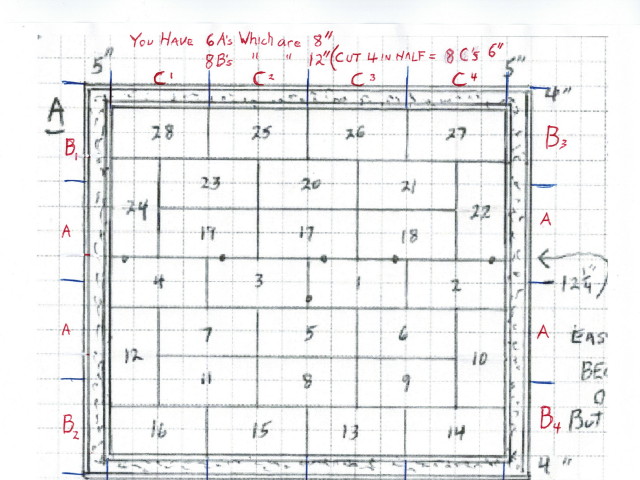 You Have 6 A's Which are 8"
8 B's " " 12" (Cut 4 in Half = 8 C's 6"
5" 5"
C1 C2 C3 C4
4"
A
28 25 26 27
B1 B3
23 20 21
24 22
A A
19 17 18
4 3 1 2
12 1/4"
7 5 6
A A EAS
12 10
BE
11 8 9
16 15 13 14
B2 B4 But
4"